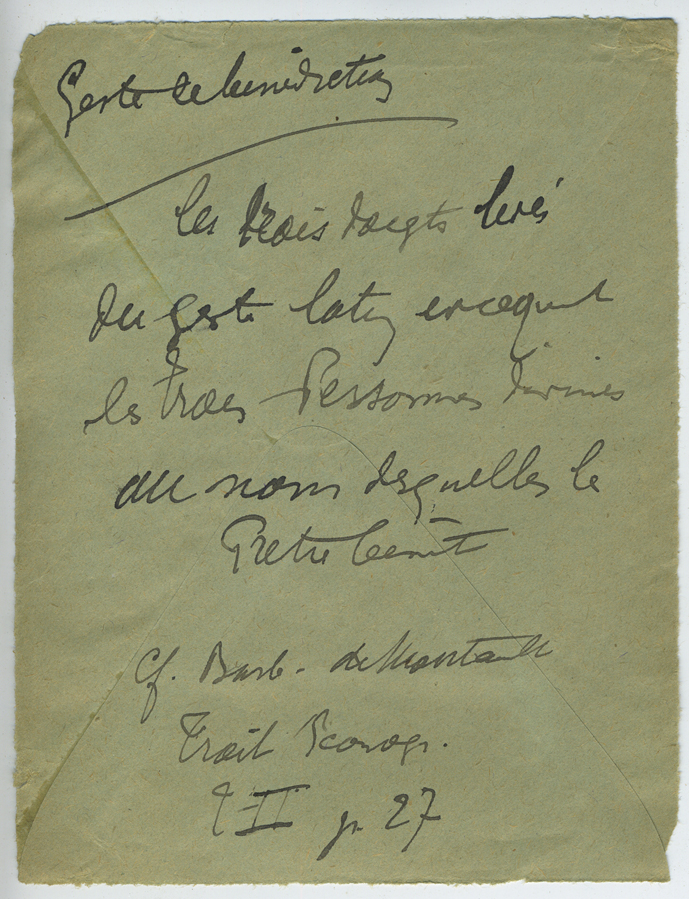 Geste de bénédiction
les trois doigts levés
du geste latin évoquent
les trois Personnes divines
au nom desquelles le
Prêtre bénit
Cf. Barb. de Montault
Trait Iconogr.
t II p. 27